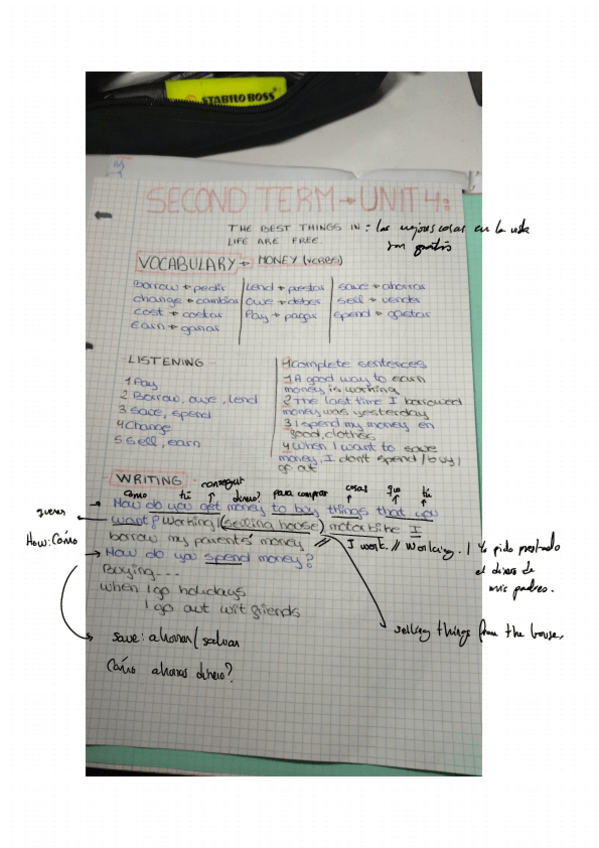 STABILO BOSS
SECOND TERM → UNIT 4:
THE BEST THINGS IN : las mejores cosas en la vida
LIFE ARE FREE. son gratis
VOCABULARY → MONEY (VERBS)
borrow → pedir
change → cambiar
cost → costar
Earn → ganar
Lend → prestar
Owe → deber
Pay → pagar
save → ahorrar
Sell → vender
spend → gastar
LISTENING
1 Pay
2 Borrow, owe, lend
3 Save, spend
4 Change
5 Sell, earn
4 Complete sentences
1 A good way to earn
money is working
2 The last time I borrowed
money was yesterday
3 I spend my money en
food, clothes
4 When I want to save
money, I don't spend / buy /
go out
WRITING
como tú conseguir dinero? para comprar cosas que tú
How do you get money to buy things that you
querer
want? Working / (selling house) motorbike I
How: Cómo
borrow my parents' money // I work. // Working. / Yo pido prestado
el dinero de
mis padres.
→ How do you spend money?
Buying...
When I go holidays
I go out wit friends
selling things from the house,
save: ahorrar / salvar
Cómo ahorras dinero?